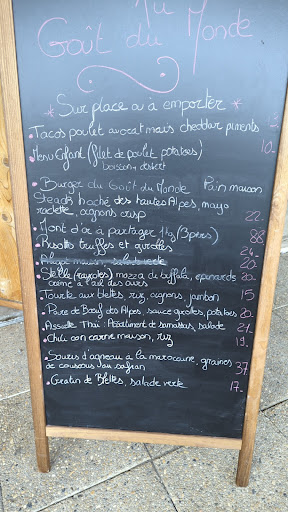 Au
Goût du Monde
* Sur place ou à emporter *
• Tacos poulet avocat maïs cheddar piments
• Menu Enfant (filet de poulet, potatoes) 10.-
boisson + dessert
• Burger du Goût du Monde Pain maison
Steack haché des hautes Alpes, mayo
raclette, oignons crisp 22.-
• Mont d'or à partager 1kg (3pers) 88
• Risotto truffes et girolles 24.-
maison, salade verte 20
mozza di buffala, épinards 20.-
crème à l'ail des ours
• Tourte aux blettes, riz, oignons, jambon 15
• Pavé de Boeuf des Alpes, sauce girolles, potatoes 20
• Assiette Thaï: Assortiment de samoussas, salade 21.
• Chili con carne maison, riz 19.
• Souris d'agneau à la marocaine, graines 37
de couscous au safran
• Gratin de Blettes, salade verte 17.-